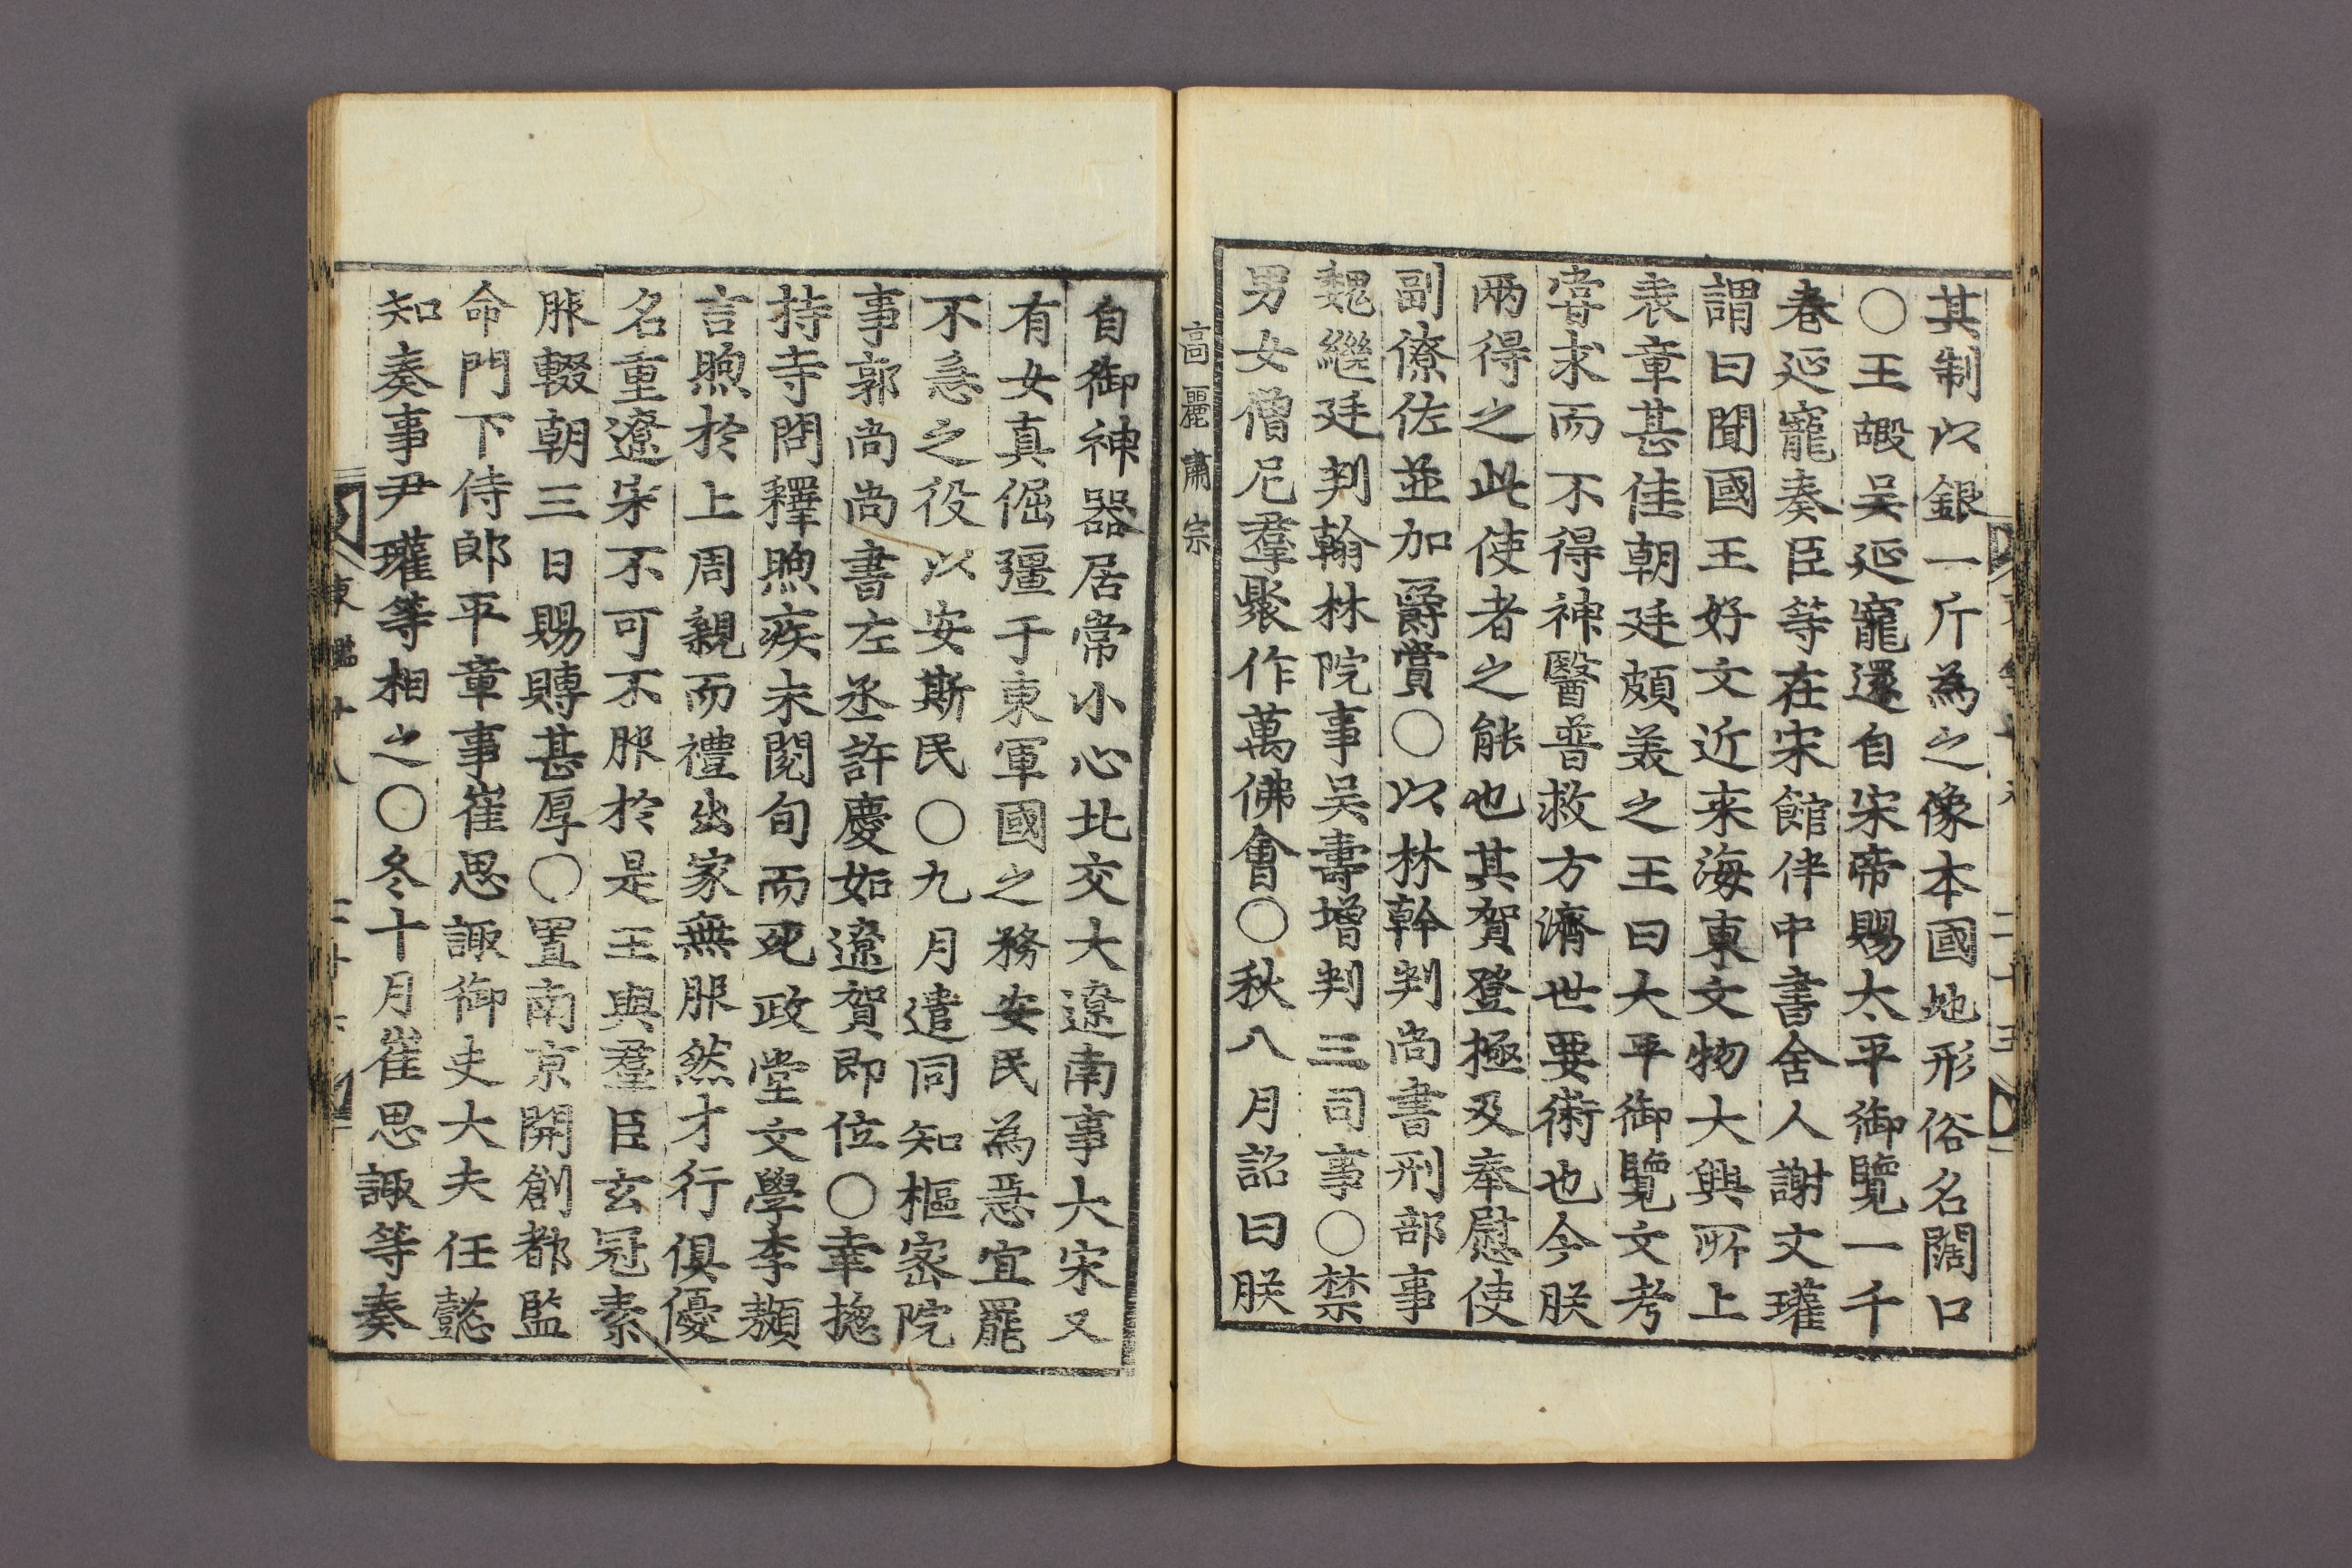 其制以銀一斤為之像本國地形俗名闊口
○王嘏吳延寵還自宋帝賜太平御覽一千
卷延寵奏臣等在宋館伴中書舍人謝文瓘
謂曰聞國王好文近来海東文物大興所上
表章甚佳朝廷頗羙之王曰大平御覽文考
甞求而不得神醫普救方濟世要術也今朕
兩得之此使者之能也其賀登極及奉慰使
副僚佐並加爵賞○以林幹判尚書刑部事
魏繼廷判翰林院事吳壽增判三司事○禁
男女僧尼羣聚作萬佛會○秋八月詔曰朕
高麗肅宗
自御神器居常小心北交大遼南事大宋又
有女真倔彊于東軍國之務安民為急宜罷
不急之役以安斯民○九月遣同知樞密院
事郭尚尚書左丞許慶如遼賀即位○幸摠
持寺問釋煦疾未閱旬而死政堂文學李䫨
言煦於上周親而禮出家無服然才行俱優
名重遼宋不可不服於是王與羣臣玄冠素
服輟朝三日賜賻甚厚○置南京開創都監
命門下侍郎平章事崔思諏御史大夫任懿
知奏事尹瓘等相之○冬十月崔思諏等奏